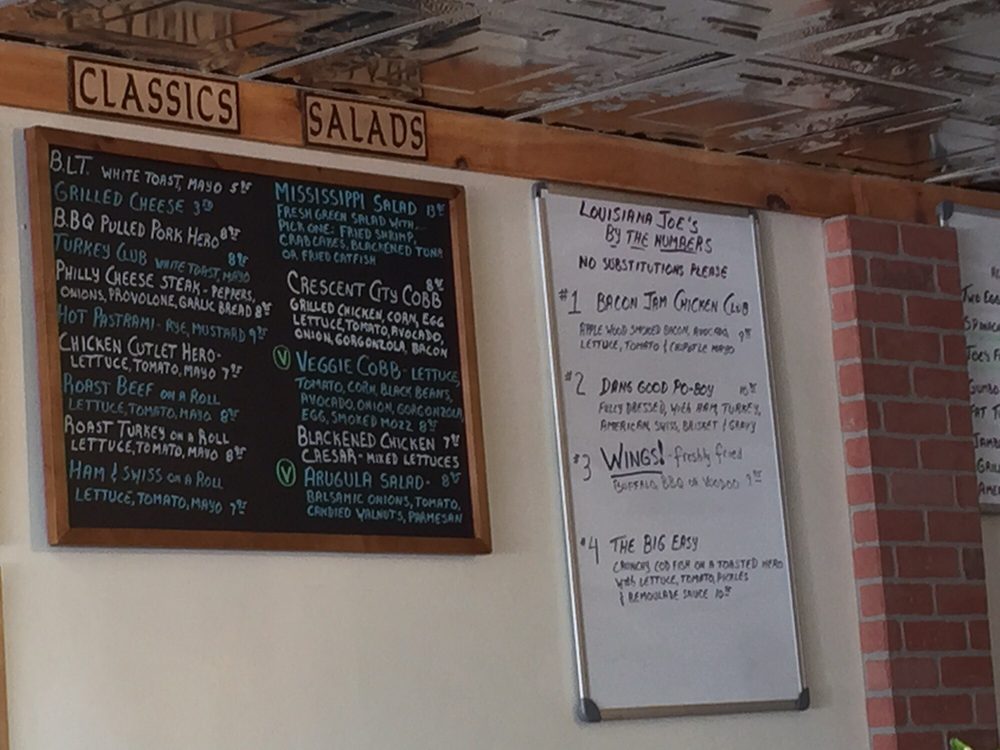 CLASSICS
B.L.T. WHITE TOAST, MAYO
GRILLED CHEESE
B.BQ PULLED PORK HERO
TURKEY CLUB WHITE TOAST, MAYO
PHILLY CHEESE STEAK - PEPPERS,
ONIONS, PROVOLONE, GARLIC BREAD
HOT PASTRAMI - RYE, MUSTARD
CHICKEN CUTLET HERO-
LETTUCE, TOMATO, MAYO
ROAST BEEF ON A ROLL
LETTUCE, TOMATO, MAYO
ROAST TURKEY ON A ROLL
LETTUCE, TOMATO, MAYO
HAM & SWISS ON A ROLL
LETTUCE, TOMATO, MAYO
SALADS
MISSISSIPPI SALAD
FRESH GREEN SALAD WITH-
PICK ONE: FRIED SHRIMP,
CRABCAKES, BLACKENED TUNA
OR FRIED CATFISH
CRESCENT CITY COBB
GRILLED CHICKEN, CORN, EGG
LETTUCE, TOMATO, AVOCADO,
ONION, GORGONZOLA, BACON
V VEGGIE COBB - LETTUCE,
TOMATO, CORN, BLACK BEANS,
AVOCADO, ONION, GORGONZOLA
EGG, SMOKED MOZZ
BLACKENED CHICKEN
CAESAR - MIXED LETTUCES
V ARUGULA SALAD -
BALSAMIC ONIONS, TOMATO,
CANDIED WALNUTS, PARMESAN
LOUISIANA JOE'S
BY THE NUMBERS
NO SUBSTITUTIONS PLEASE
#1 BACON JAM CHICKEN CLUB
APPLE WOOD SMOKED BACON, AVOCADO,
LETTUCE, TOMATO & CHIPOTLE MAYO
#2 DANG GOOD PO-BOY
FULLY DRESSED, WITH HAM, TURKEY,
AMERICAN, SWISS, BRISKET & GRAVY
#3 WINGS! - freshly fried
BUFFALO, BBQ OR VOODOO
#4 THE BIG EASY
CRUNCHY COD FISH ON A TOASTED HERO
WITH LETTUCE, TOMATO, PICKLES
& REMOULADE SAUCE
TWO
JOE'S